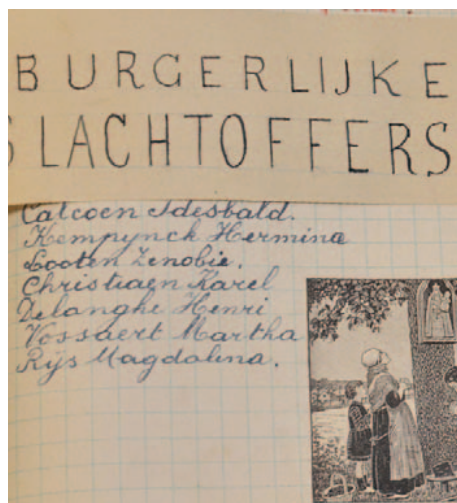 BURGERLIJKE
SLACHTOFFERS
Calcoen Idesbald.
Kempynck Hermina
Looten Zenobie.
Christiaen Karel
Delanghe Henri
Vossaert Martha
Rijs Magdalena.